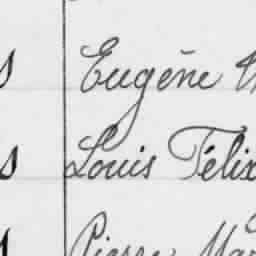 s Eugène
s Louis Félix
s Pierre Mar